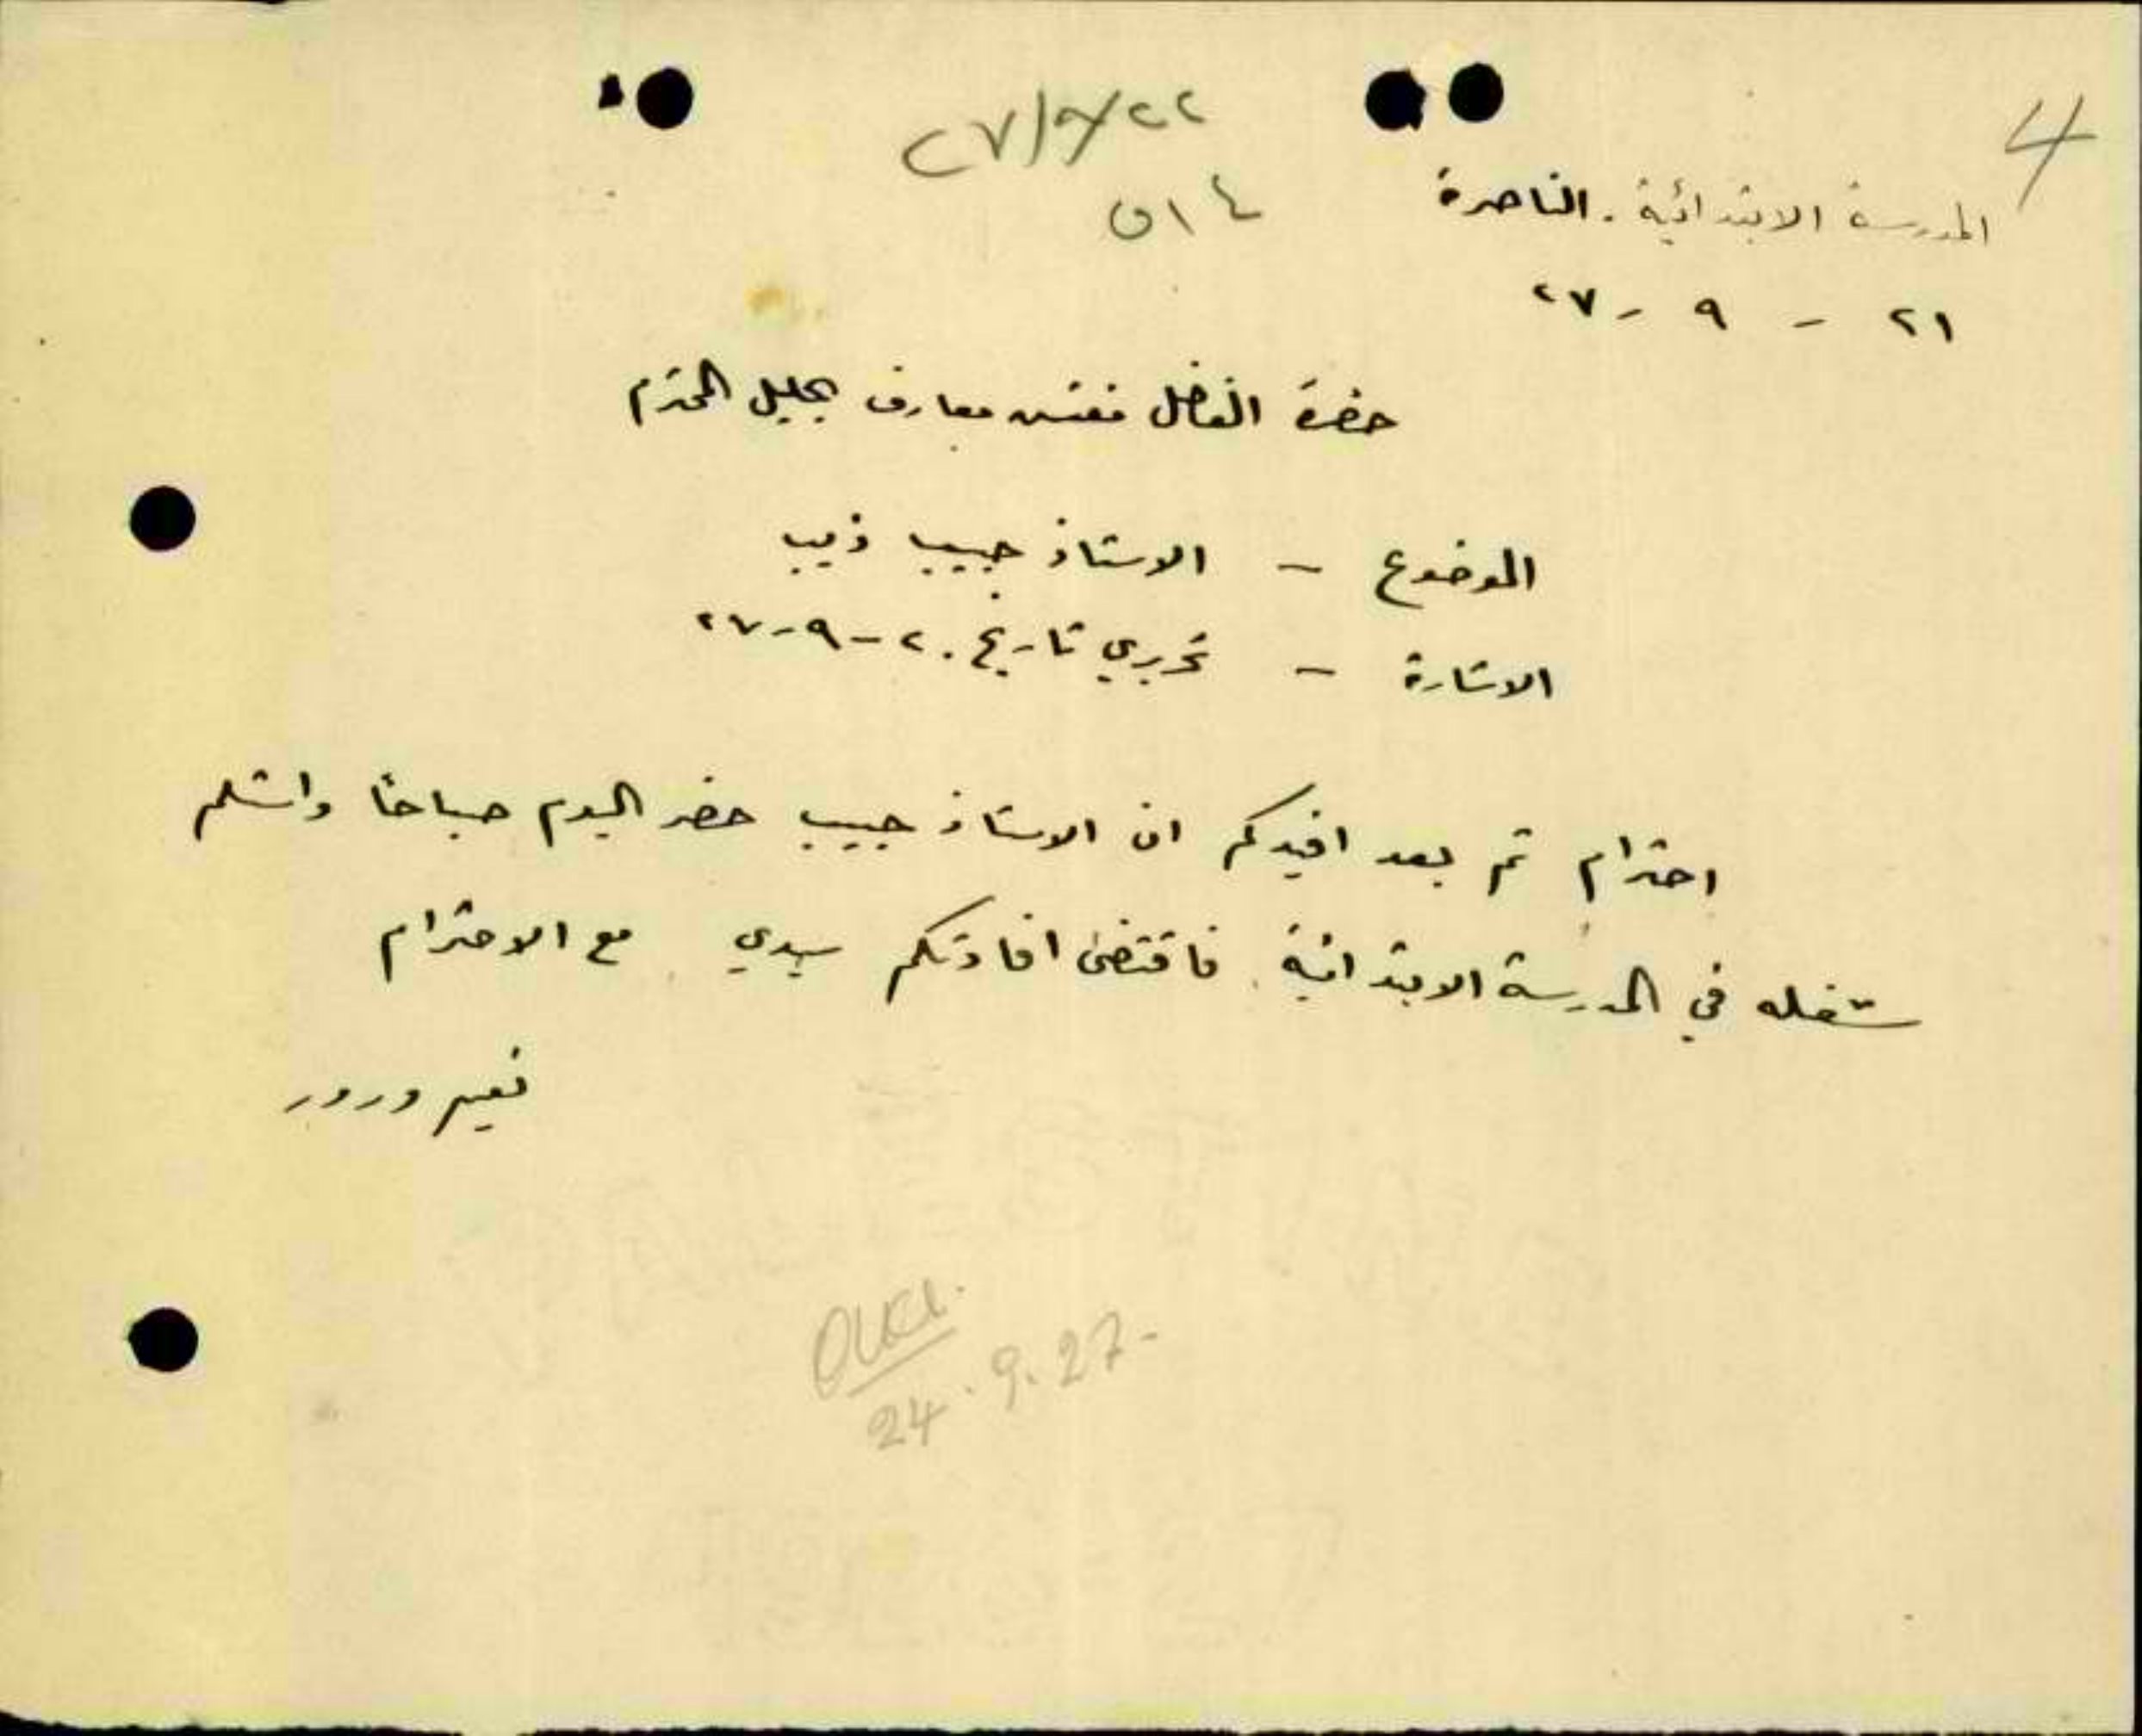 4
٢٧/٩/٢٢
٥١٤
المدرسة الابتدائية . الناصرة
٢١ - ٩ - ٢٧
حضرة الفاضل مفتش معارف الجليل المحترم
الموضوع - الاستاذ حبيب ذيب
الاشارة - تحريري تاريخ ٢٠-٩-٢٧
احترام ثم بعد افيدكم ان الاستاذ حبيب حضر اليوم صباحًا واستلم
شغله في المدرسة الابتدائية فاقتضى افادتكم سيدي مع الاحترام
نعيم ورور
24.9.27-